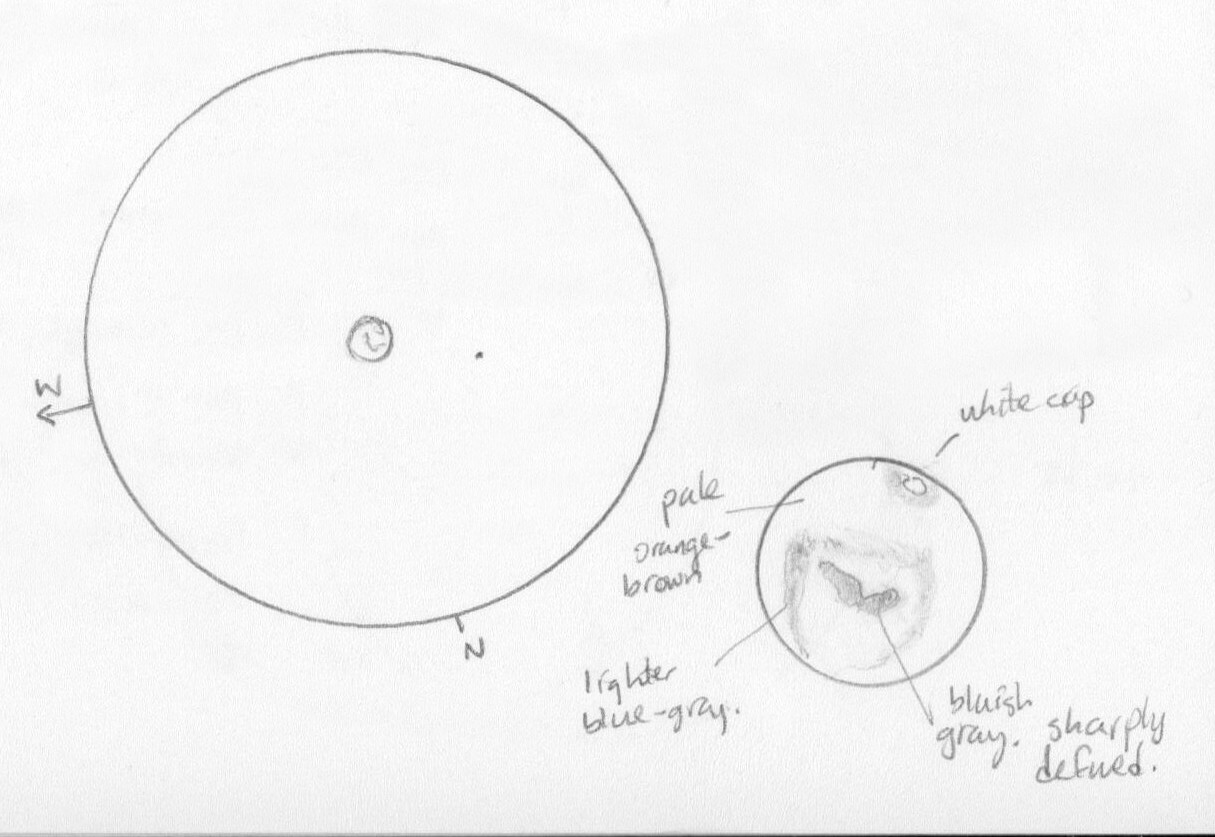 W
N
white cap
pale
orange-
brown
lighter
blue-gray.
bluish
gray. sharply
defined.